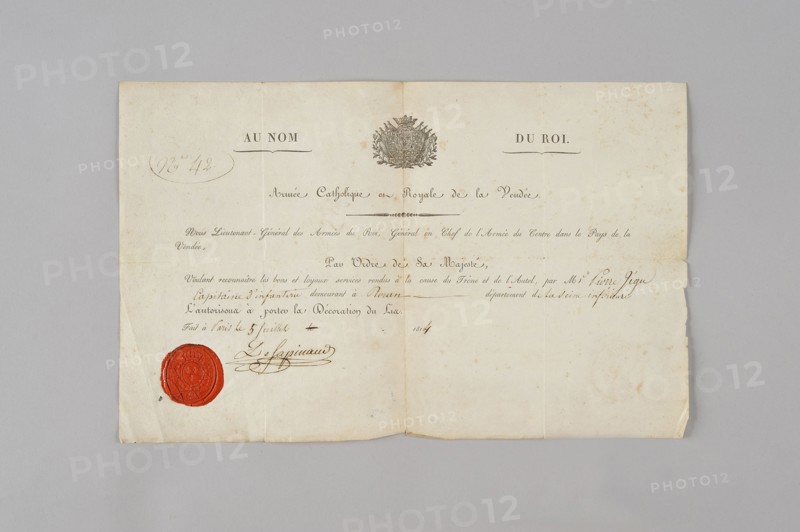 AU NOM DU ROI.
N.° 42
Armée Catholique et Royale de la Vendée.
Nous Lieutenant-Général des Armées du Roi, Général en Chef de l'Armée du Centre dans le Pays de la
Vendée,
Par Ordre de Sa Majesté,
Voulant reconnaître les bons et loyaux services rendus à la cause du Trône et de l'Autel, par M.r Pierre
Capitaine d'infanterie demeurant à Rouen département de la Seine inférieure
L'autorisons à porter la Décoration du Lis.
Fait à Paris le 5 Juillet 1814
De Sapinaud
PHOTO12